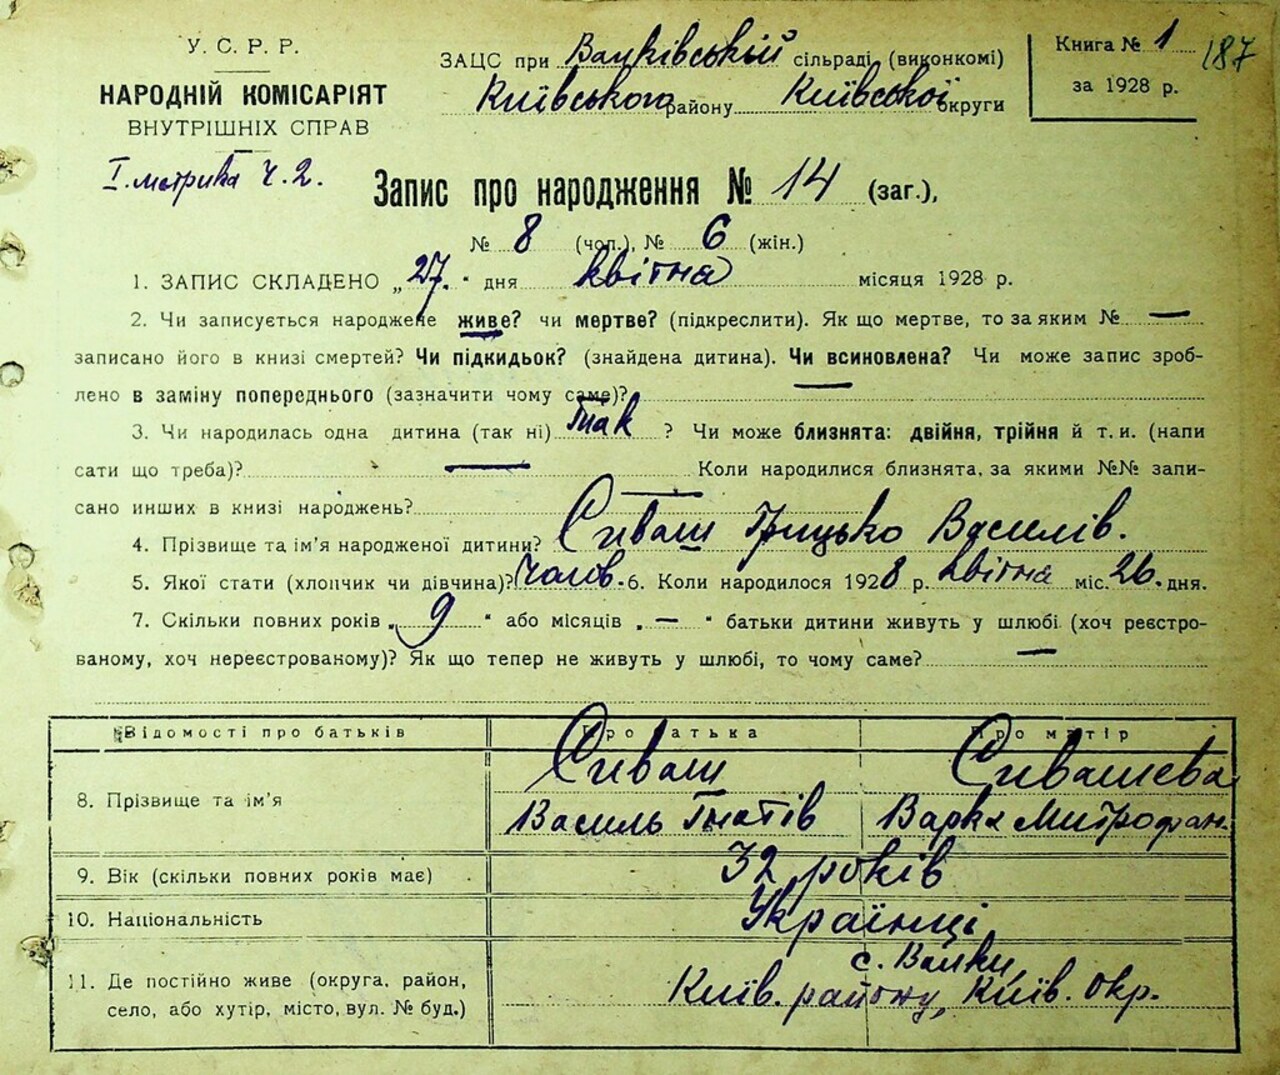 У. С. Р. Р.
НАРОДНІЙ КОМІСАРІЯТ
ВНУТРІШНІХ СПРАВ
І. метрика Ч. 2.
ЗАЦС при сільраді (виконкомі)
Київського району Київської округи
Книга № 1
за 1928 р.
187
Запис про народження № 14 (заг.),
№ 8 (чол.), № 6 (жін.)
1. ЗАПИС СКЛАДЕНО „27." дня квітня місяця 1928 р.
2. Чи записується народжене живе? чи мертве? (підкреслити). Як що мертве, то за яким № —
записано його в книзі смертей? Чи підкидьок? (знайдена дитина). Чи всиновлена? Чи може запис зроб-
лено в заміну попереднього (зазначити чому саме)? —
3. Чи народилась одна дитина (так ні) так ? Чи може близнята: двійня, трійня й т. и. (напи
сати що треба)? — Коли народилися близнята, за якими №№ запи-
сано инших в книзі народжень? —
4. Прізвище та ім'я народженої дитини? Сиваш Грицько Василів.
5. Якої стати (хлопчик чи дівчина)? Чолов. 6. Коли народилося 1928 р. квітня міс. 26. дня.
7. Скільки повних років „ 9 " або місяців „ — " батьки дитини живуть у шлюбі (хоч реєстро-
ваному, хоч нереєстрованому)? Як що тепер не живуть у шлюбі, то чому саме? —
Відомості про батьків Про батька Про матір
8. Прізвище та ім'я Сиваш Сивашева
Василь Гнатів Варка Митрофан.
9. Вік (скільки повних років має) 32 років
10. Національність Українці
11. Де постійно живе (округа, район,
село, або хутір, місто, вул. № буд.)
с.
Київ. району, Київ. окр.